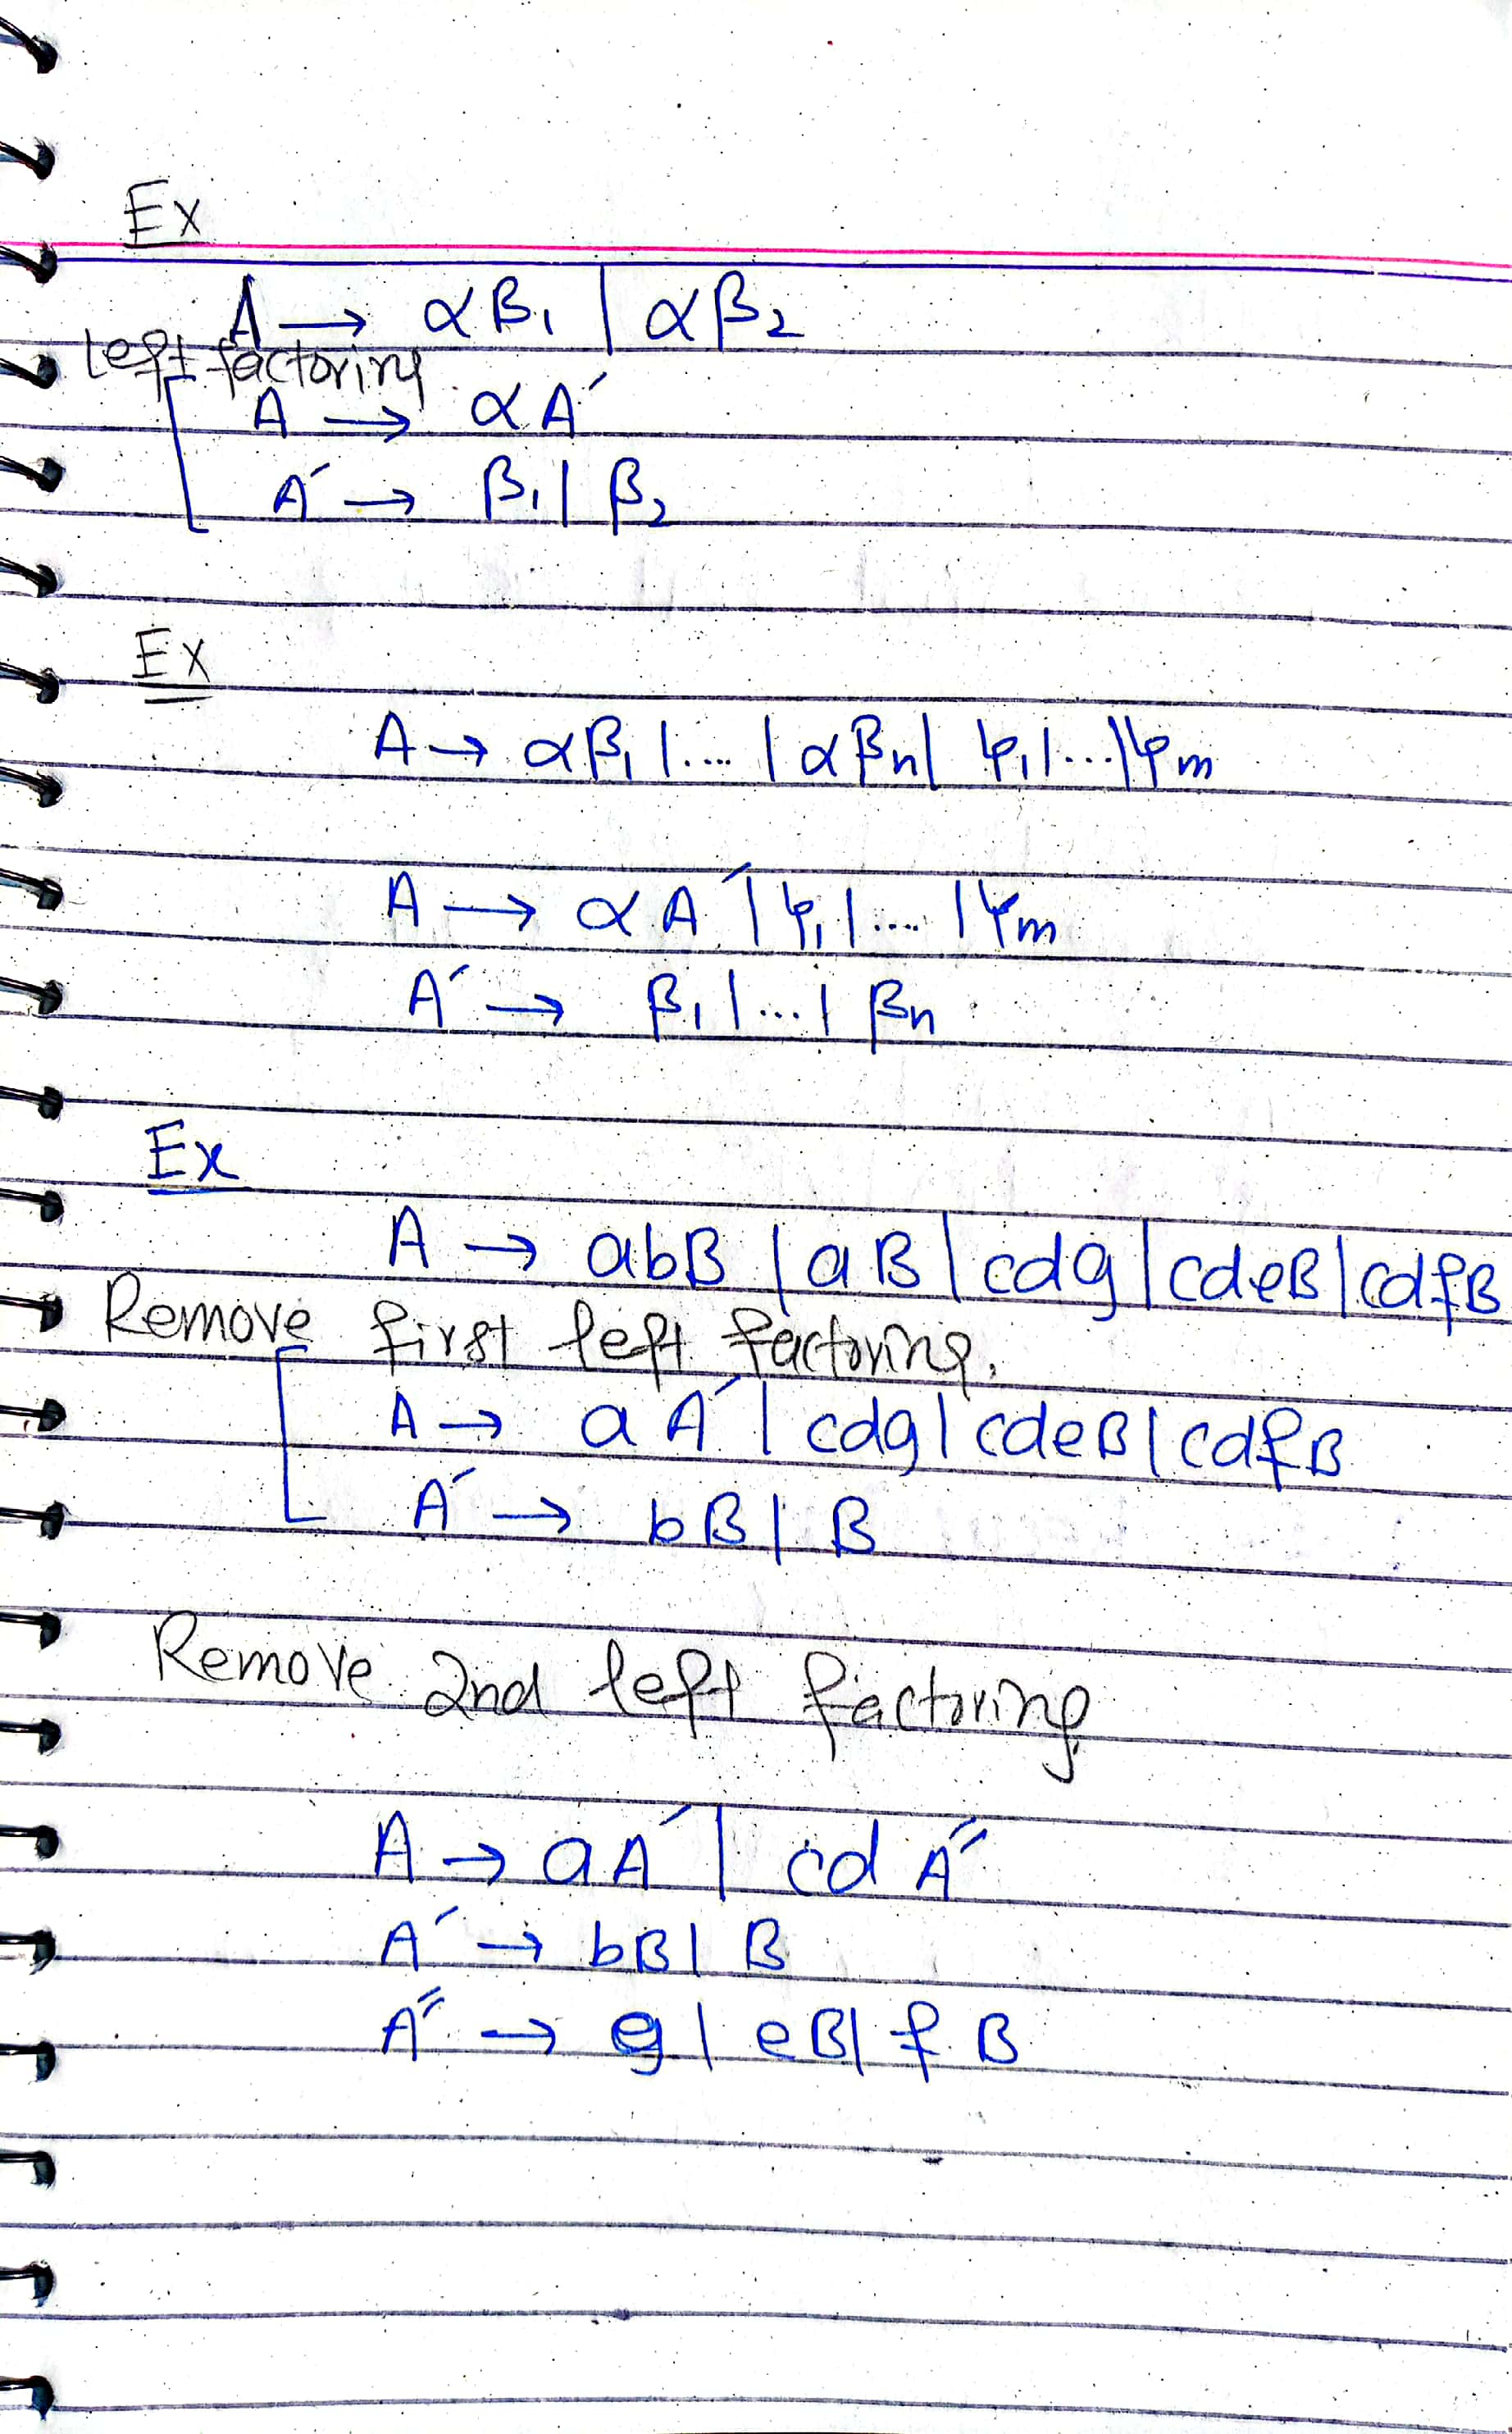 Ex
A → αβ₁ | αβ₂
Left factoring
A → αA′
A′ → β₁ | β₂
Ex
A → αβ₁ | .... | αβn | ψ₁ | ... | ψm
A → αA′ | ψ₁ | .... | ψm
A′ → β₁ | ... | βn
Ex
A → abB | aB | cdg | cdeB | cdfB
Remove first left factoring.
A → aA′ | cdg | cdeB | cdfB
A′ → bB | B
Remove 2nd left factoring
A → aA′ | cdA″
A′ → bB | B
A″ → g | eB | fB